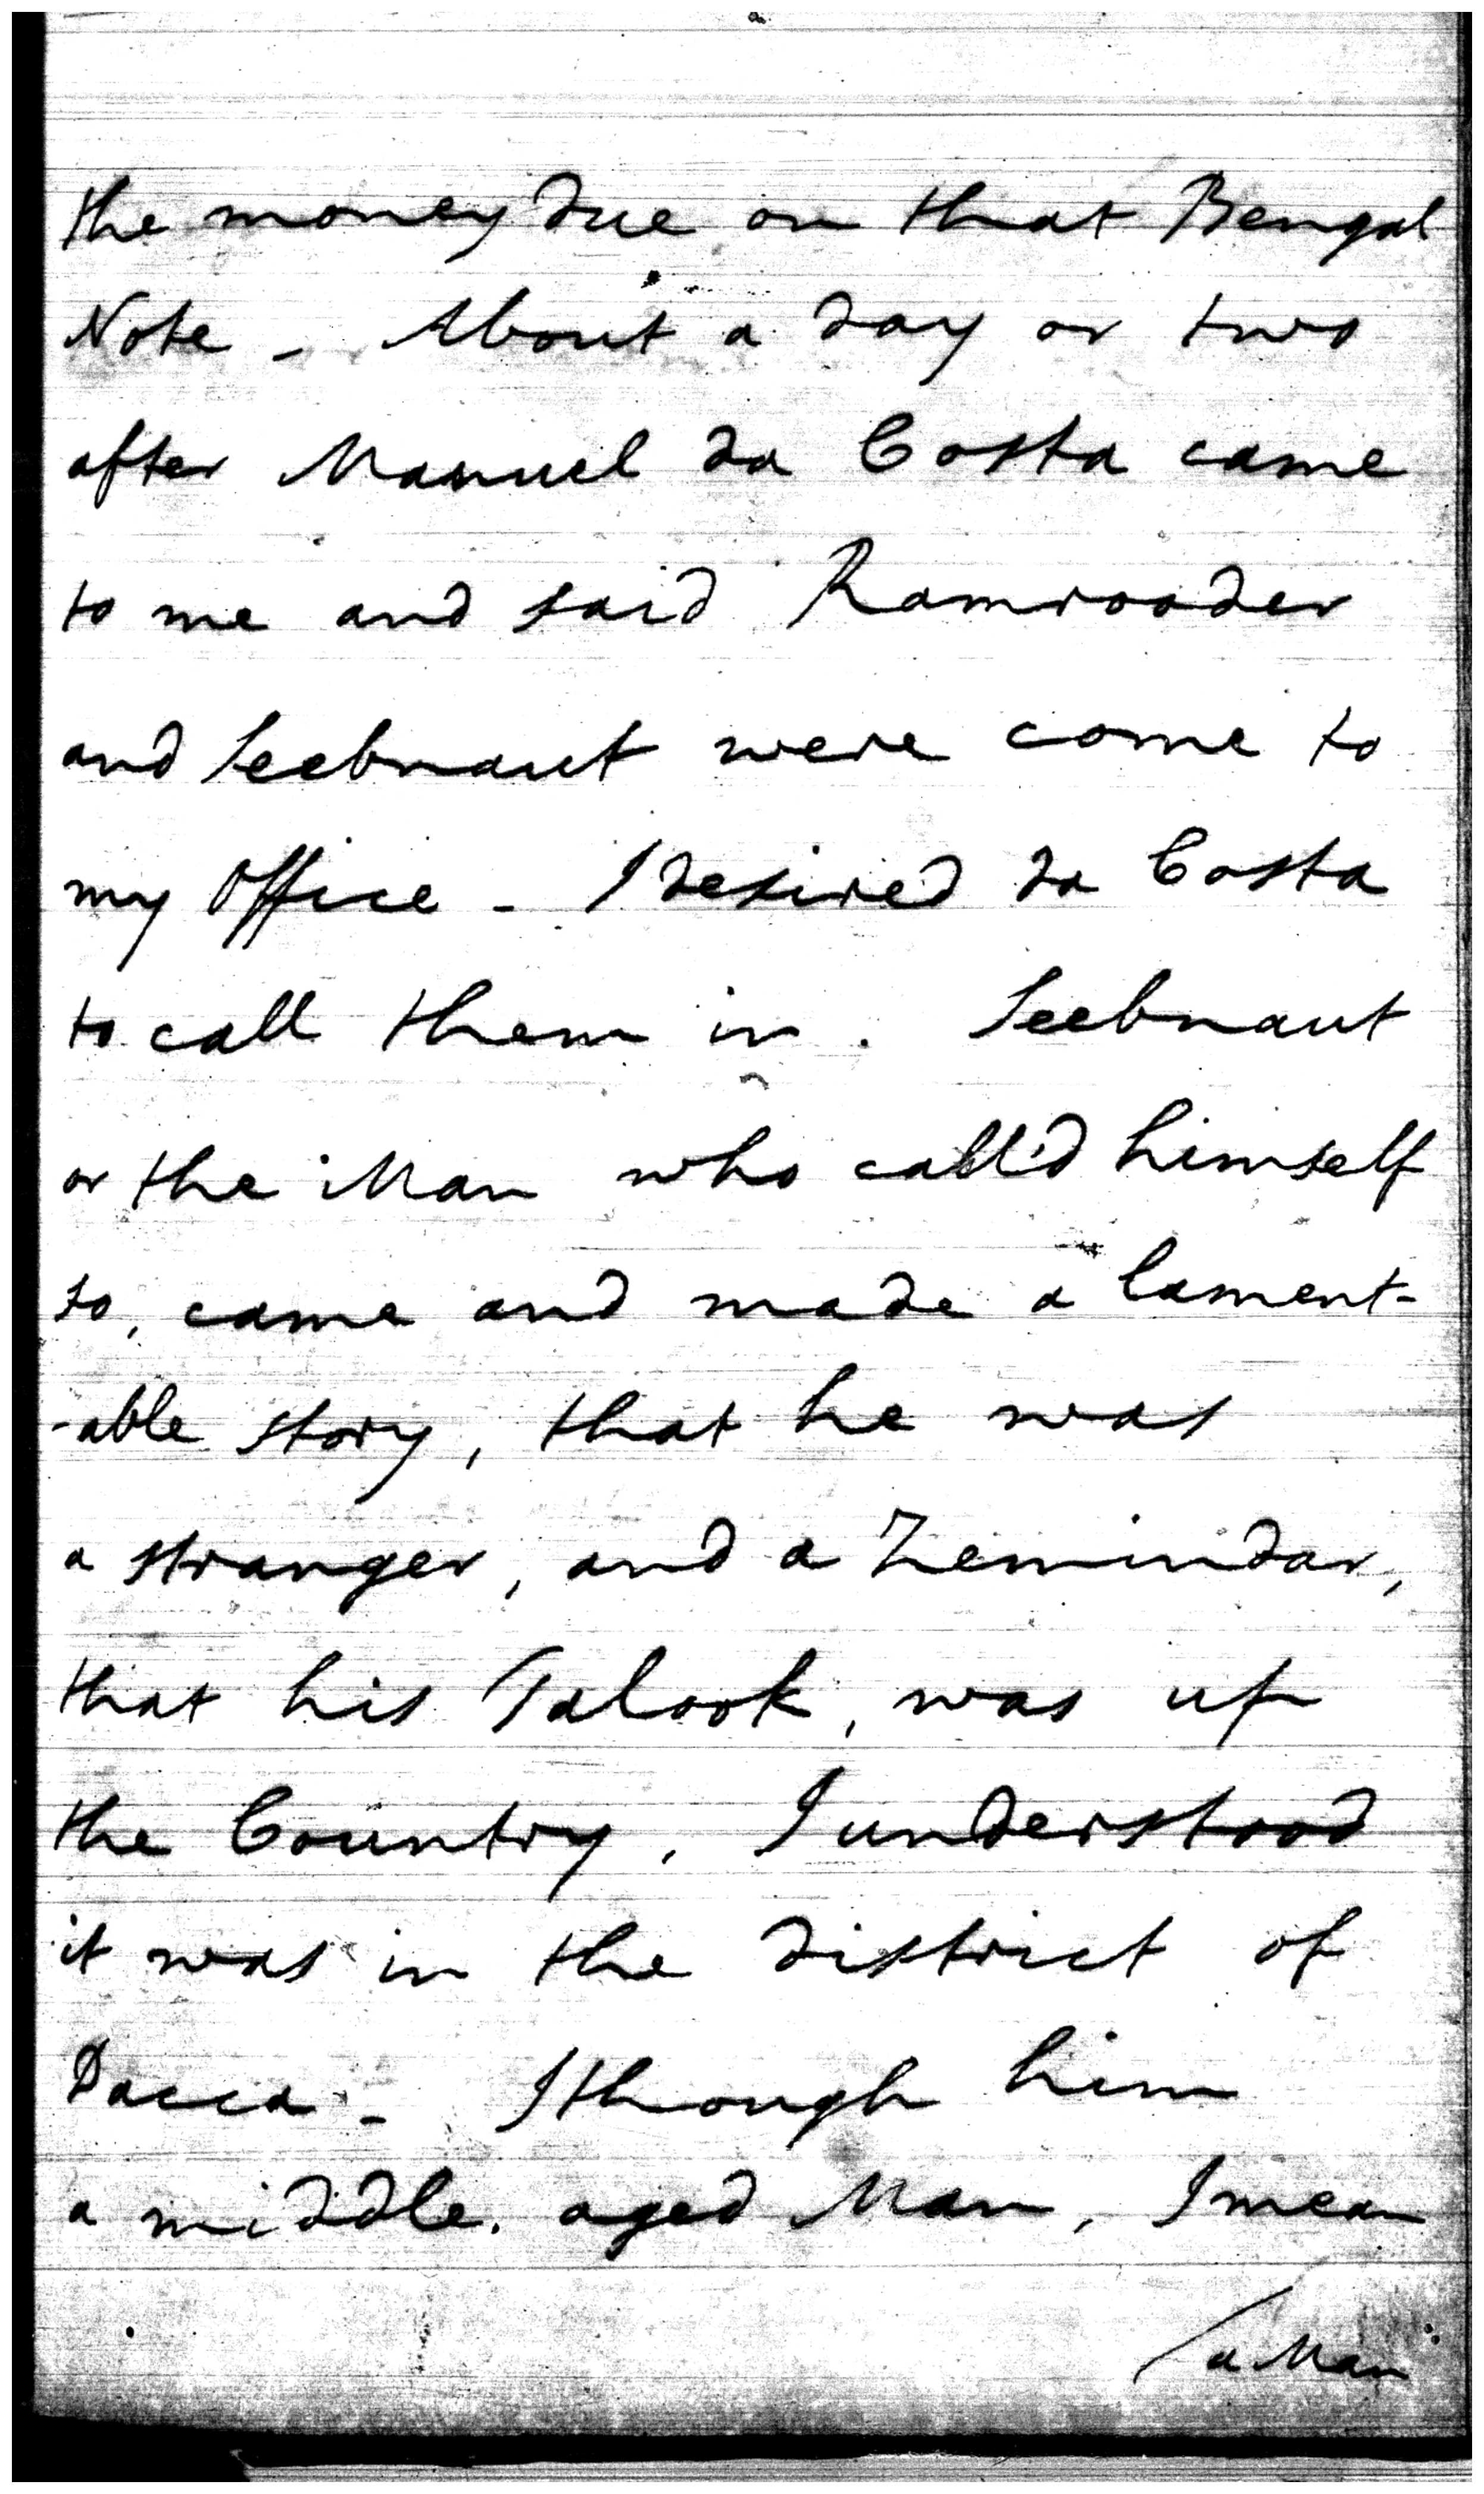 the money due on that Bengal
Note - About a day or two
after Manuel da Costa came
to me and said Ramrooder
and Seebnaut were come to
my Office - I desired da Costa
to call them in. Seebnaut
or the Man who call'd himself
so, came and made a lament-
-able story, that he was
a stranger, and a Zemindar,
that his Talook, was up
the Country, I understood
it was in the district of
Dacca - I though him
a middle. aged Man, I mean
/ a Man